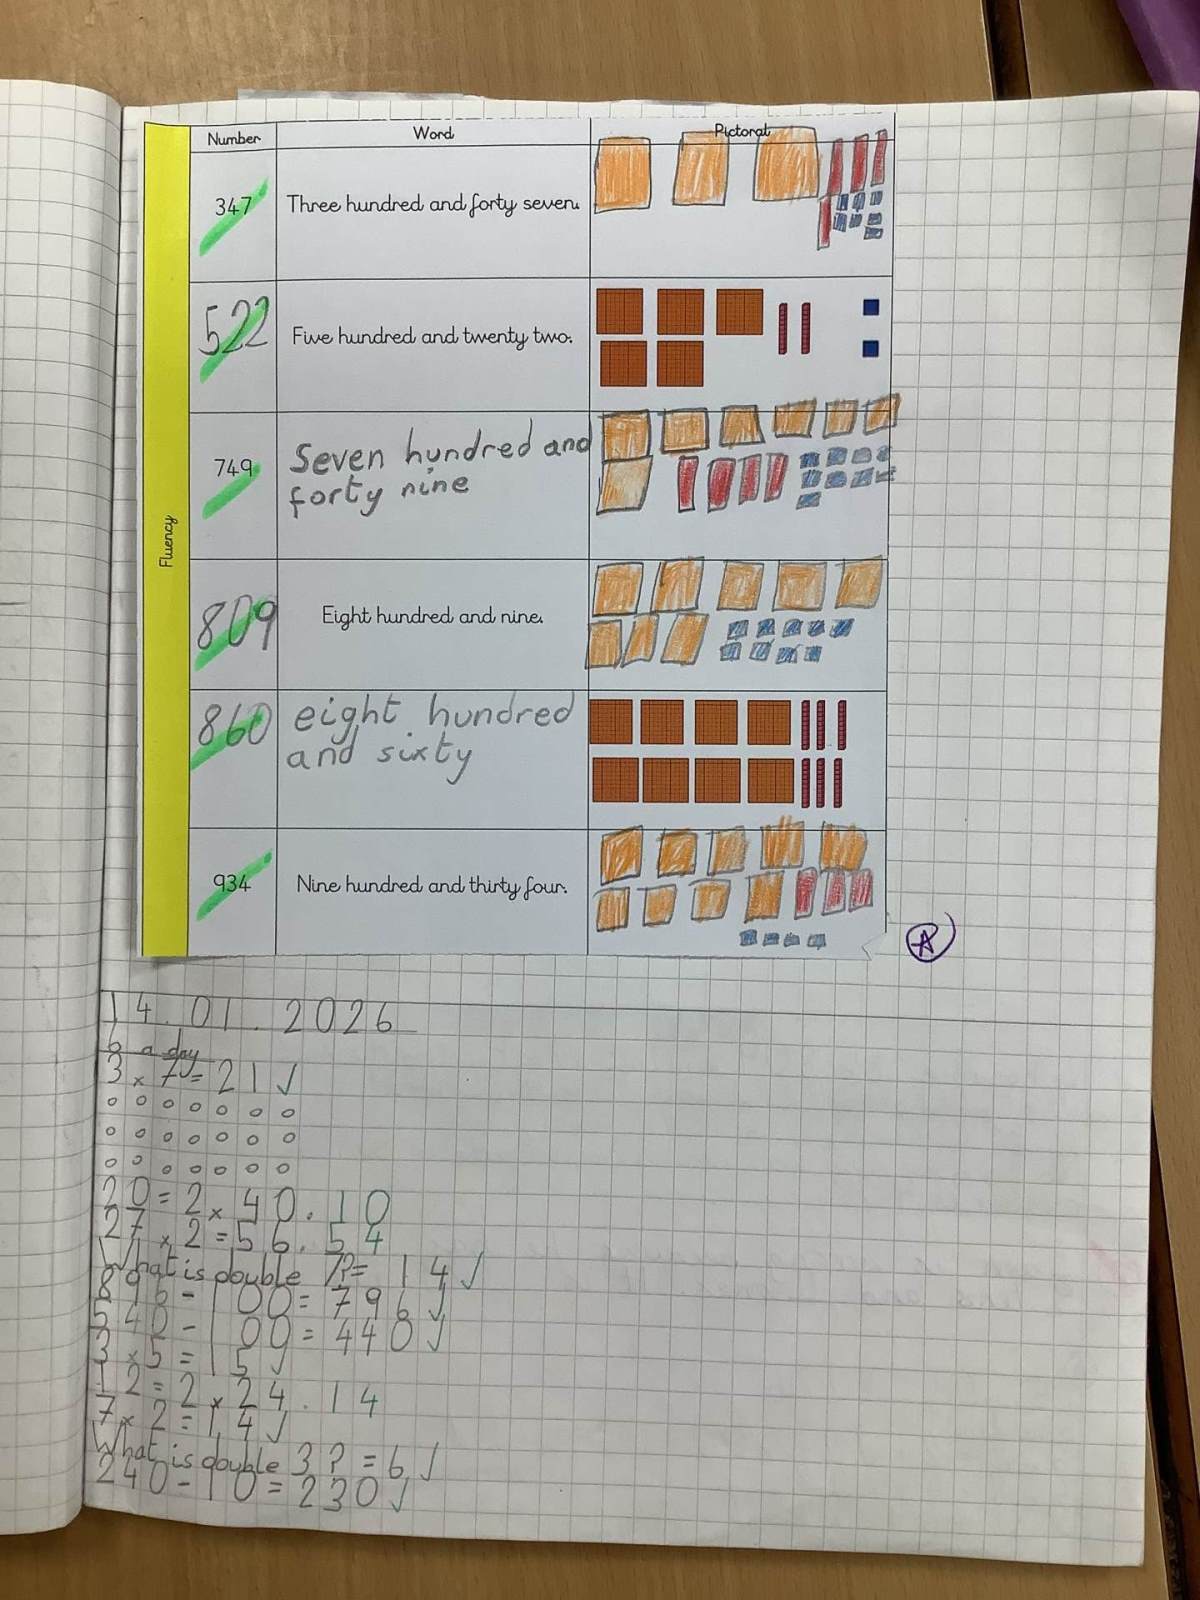 Number Word Pictoral
Fluency
347 Three hundred and forty seven.
522 Five hundred and twenty two.
749 Seven hundred and
forty nine
809 Eight hundred and nine.
860 eight hundred
and sixty
934 Nine hundred and thirty four.
A
14.01.2026
6 a day
3 x 7 = 21 ✓
20 = 2 x 40. 10
27 x 2 = 56. 54
What is double 7? = 14 ✓
896 - 100 = 796 ✓
540 - 100 = 440 ✓
3 x 5 = 15 ✓
12 = 2 x 24. 14
7 x 2 = 14 ✓
What is double 3? = 6 ✓
240 - 10 = 230 ✓